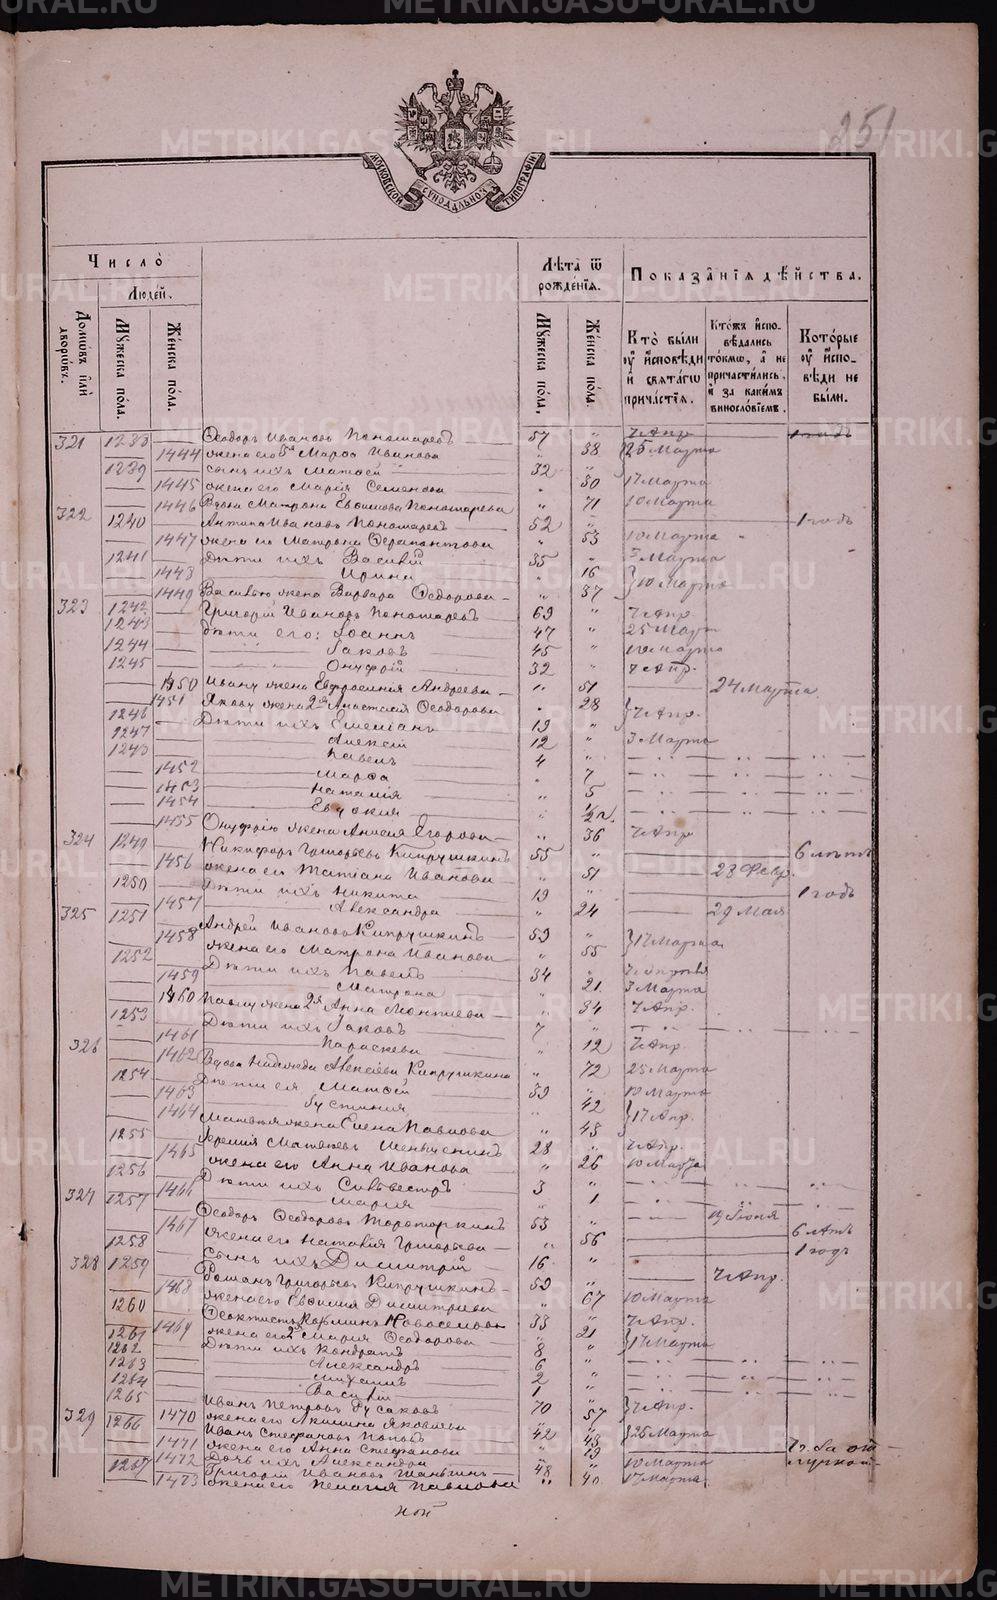 METRIKI.GASO-URAL.RU
251
МОСКОВСКОЙ СѴНОДАЛЬНОЙ ТИПОГРАФІИ
Число̀
Людей.
Домѡвъ, или дворѡвъ.
Мꙋжеска по́ла.
Же́нска по́ла.
Лѣ́та ѿ рожде́нїѧ.
Мꙋжеска по́ла.
Же́нска по́ла.
Показа́нїѧ дѣ́йства.
Кто̀ бы́ли ᲂу҆ и҆сповѣди и҆ свѧта́гѡ прича́стїѧ.
Кто́жъ и҆спо-вѣ́дались то́кмѡ, а҆ не причасти́лись, и҆ за каки́мъ виносло́вїемъ.
Кото́рые ᲂу҆ и҆спо-вѣ́ди не бы́ли.
321 1238 Ѳеодоръ Ивановъ Пономаревъ 57 " 7 Апр 1 годъ
1444 жена его 3я Марѳа Иванова " 38 25 Марта
1239 сынъ ихъ Матѳей 32 "
1445 жена его Марія Семенова " 30 17 Марта
1446 Вдова Матрона Евѳимова Пономарева " 71 10 Марта
322 1240 Антипа Ивановъ Пономаревъ 52 " 1 годъ
1447 жена его Матрона Ферапонтова " 53 10 Марта
1241 Дѣти ихъ Василій 35 " 3 Марта
1448 Ирина " 16 } 10 Марта
1449 Василью жена Варвара Ѳедорова " 37
323 1242 Григорій Ивановъ Пономаревъ 69 " 7 Апр.
1243 Дѣти его: Іоаннъ 47 " 25 Март
1244 Іаковъ 45 " 10 Марта
1245 Онуфрій 32 " 7 Апр.
1450 Ивану жена Евфросинія Андреева " 51 24 Марта
1451 Якову жена 2я Анастасія Ѳеодорова " 28 } 7 Апр.
1246 Дѣти ихъ Емеліанъ 19 "
1247 Алексій 12 " 3 Марта
1248 Павелъ 4 "
1452 Марѳа " 7
1453 Наталія " 5
1454 Евдокия " 1/2 г.
1455 Онуфрію жена Анисія Егорова " 36 7 Апр
324 1249 Никифоръ Григорьевъ Кипрушкинъ 55 " 6 лѣтъ
1456 жена его Татіана Иванова " 51 28 Февр.
1250 Дѣти ихъ Никита 19 " 1 годъ
1457 Александра " 24 29 Мая
325 1251 Андрей Ивановъ Кипрушкинъ 59 " } 17 Марта
1458 жена его Матрона Иванова " 55
1252 Дѣти ихъ Павелъ 34 " 7 Апреля
1459 Матрона " 21 3 Марта
1460 Павлу жена 2я Анна Леонтиева " 34 7 Апр.
1253 Дѣти ихъ Іаковъ 7 "
1461 Параскева " 12 7 Апр.
326 1462 Вдова Надежда Алексіева Кипрушкина " 72 25 Марта
1254 Дѣти ея Матѳей 39 " 18 Марта
1463 Іустинія " 42 } 17 Апр.
1464 Матвея жена Елена Павлова " 43
1255 Іеремія Матвеевъ 28 " 7 Апр.
1465 жена его Анна Иванова " 26 10 Марта
1256 Дѣти ихъ Сильвестръ 3 "
1466 Мария " 1
327 1257 Ѳеодоръ Ѳеодоровъ Тороторкинъ 53 " 19 Іюня
1467 жена его Наталия Григорьева " 56 6 лѣтъ
1258 Сынъ ихъ Димитрій 16 " 1 годъ
328 1259 Романъ Григорьевъ Кипрушкинъ 59 " 7 Апр.
1468 жена его Евѳимія Димитриева " 67 10 Марта
1260 Ѳеоктистъ Новоселовъ 33 " 7 Апр.
1469 жена его 2я Мария Ѳеодорова " 21 } 17 Марта
1261 Дѣти ихъ Кондратъ 8 "
1262 Александръ 6 "
1263 Михаилъ 2 "
1264 Василій 1 "
1265 Иванъ Петровъ Русаковъ 70 " } 7 Апр.
329 1470 жена его Акилина Яковлева " 57
1266 Иванъ Стефановъ Поповъ 42 " } 25 Марта
1471 жена его Анна Стефанова " 43
1472 Дочь ихъ Александра " 19 10 Марта
1267 Григорій Ивановъ Паньшинъ 48 " 7 г. За от-лучкой
1473 жена его Пелагия Павлова " 40 17 Марта